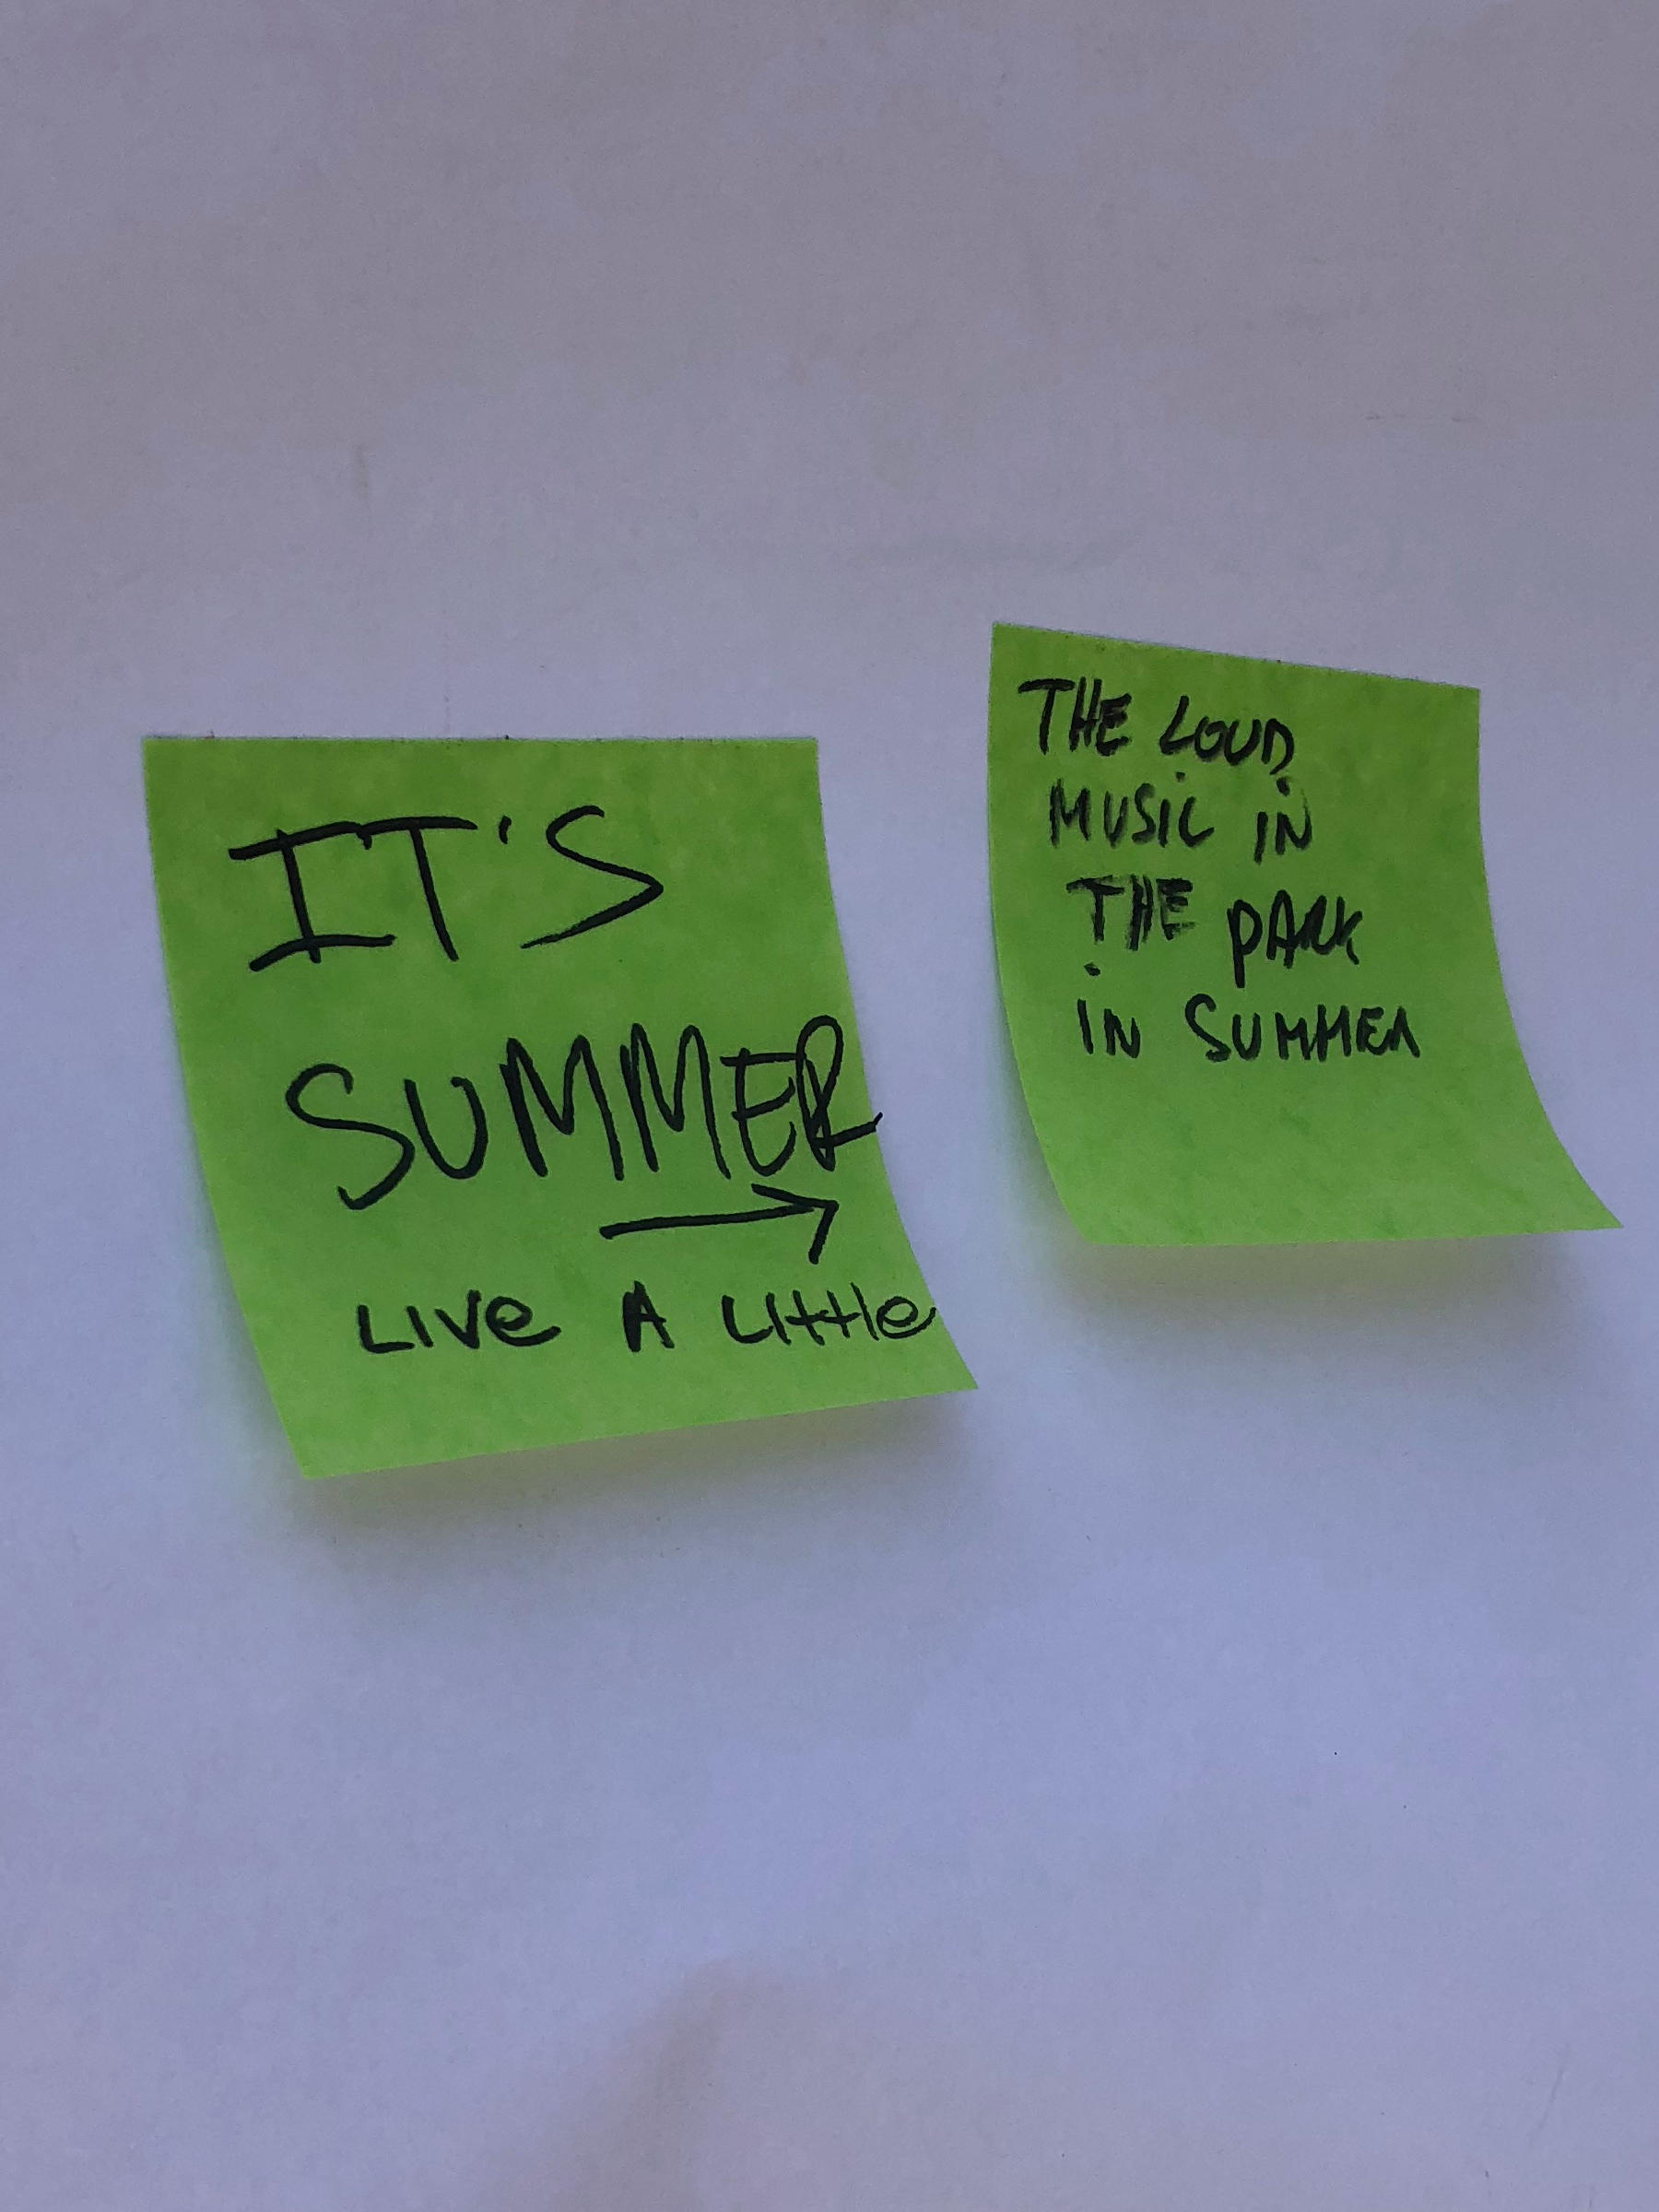 IT'S
SUMMER
→
LIVe A LIttle
THE LOUD
MUSIC IN
THE PARK
IN SUMMER